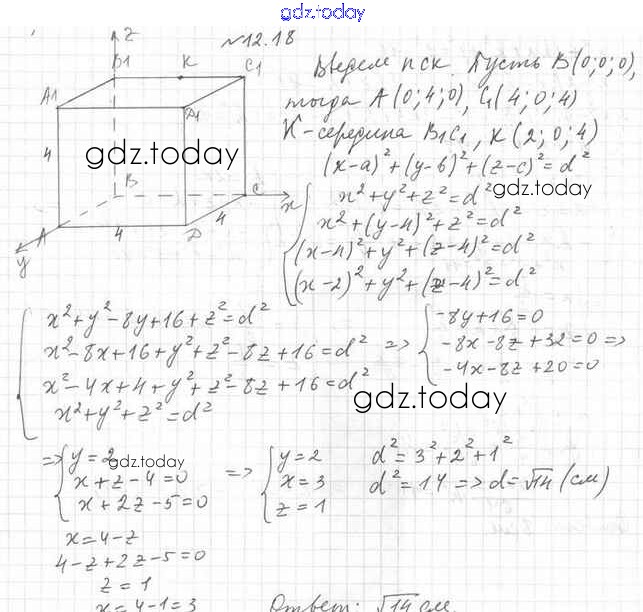 gdz.today
№12.18
Введем ПСК. Пусть B(0;0;0),
тогда A(0;4;0), C₁(4;0;4)
K-середина B₁C₁, K(2;0;4)
(x-a)²+(y-b)²+(z-c)²=d²
x²+y²+z²=d²
x²+(y-4)²+z²=d²
(x-4)²+y²+(z-4)²=d²
(x-2)²+y²+(z-4)²=d²
z
B1 K C1
A1 D1
4
gdz.today
B C x
4
A 4 D
y
gdz.today
x²+y²-8y+16+z²=d²
x²-8x+16+y²+z²-8z+16=d² =>
x²-4x+4+y²+z²-8z+16=d²
x²+y²+z²=d²
-8y+16=0
-8x-8z+32=0 =>
-4x-8z+20=0
gdz.today
=> y=2
x+z-4=0
x+2z-5=0
gdz.today
=> y=2
x=3
z=1
d²=3²+2²+1²
d²=14 => d=√14 (см)
x=4-z
4-z+2z-5=0
z=1
x=4-1=3
Ответ: √14 см.